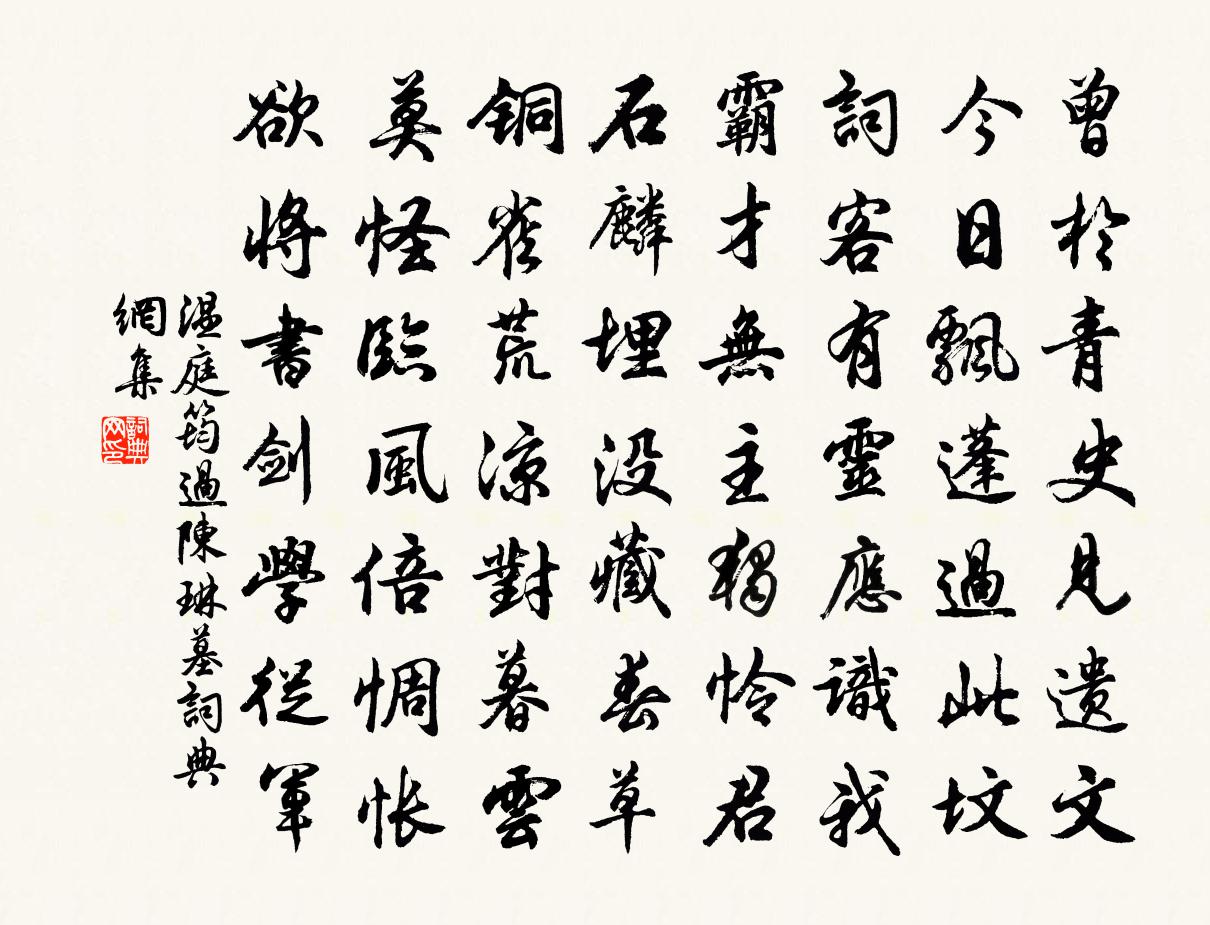 曾於青史見遺文
今日飄蓬過此坟
詞客有靈應識我
霸才無主獨怜君
石麟埋没藏春草
銅雀荒涼對暮雲
莫怪臨風倍惆悵
欲將書劍學從軍
温庭筠過陳琳墓詞典
網集
詞典
网印